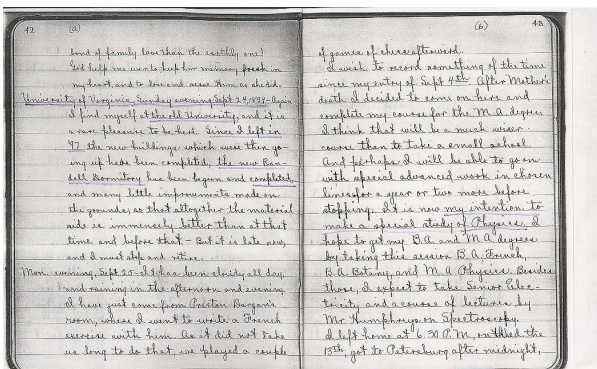 42 (a)
bond of family love than the earthly one!
God help me ever to keep her memory fresh in
my heart, and to love and serve Him as she did.
University of Virginia, Sunday evening, Sept. 24, 1899 - Again
I find myself at the old University, and it is
a rare pleasure to be here. Since I left in
'97 the new buildings which were then go-
ing up have been completed, the new Ran-
dall Dormitory has been begun and completed,
and many little improvements made on
the grounds, so that altogether the material
side is immensely better than at that
time and before that - But it is late now,
and I must stop and retire.
Mon. evening, Sept 25 - It has been cloudy all day,
and raining in the afternoon and evening
I have just come from Preston Dargan's
room, where I went to write a French
exercise with him. As it did not take
us long to do that, we played a couple
(b) 43
of games of chess afterward.
I wish to record something of the time
since my entry of Sept 4th. After Mother's
death I decided to come on here and
complete my course for the M.A. degree.
I think that will be a much wiser
course than to take a small school
And perhaps I will be able to go on
with special advanced work in chosen
lines for a year or two more before
stopping. It is now my intention to
make a special study of Physics. I
hope to get my B.A. and M.A. degrees
by taking this session B.A. French,
B.A. Botany, and M.A. Physics. Besides
those, I expect to take Senior Elec-
tricity and a course of lectures by
Mr. Humphreys on Spectroscopy.
I left home at 6.30 P.M., on Wed. the
13th, got to Petersburg after midnight,